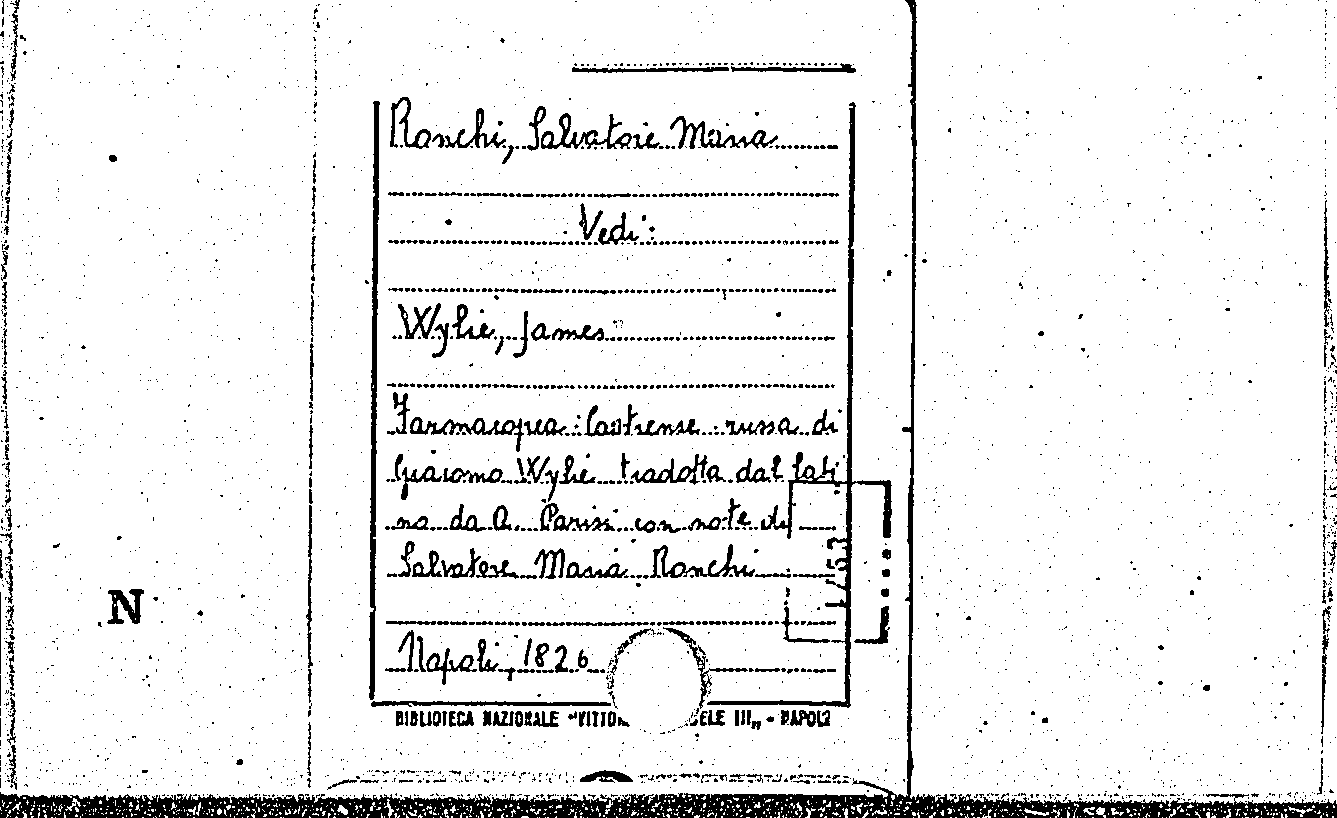 Ronchi, Salvatore Maria
Vedi:
Wylie, James
Farmacopea Castrense russa di
Giacomo Wylie tradotta dal lati
no da A. Parisi con note di
Salvatore Maria Ronchi
N
Napoli, 1826
BIBLIOTECA NAZIONALE "VITTOR ELE III„ - NAPOLI